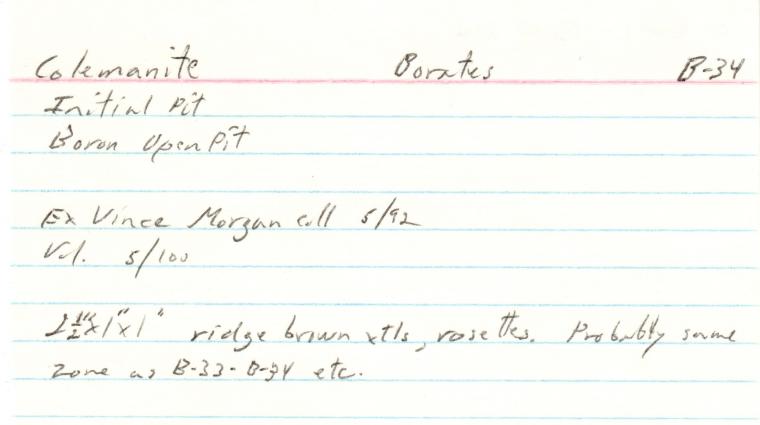 Colemanite Borates B-34
Initial Pit
Boron Open Pit
Ex Vince Morgan coll 5/92
Val. 5/100
1"x1" ridge brown xtls, rosettes. Probably same
zone as B-33- B-34 etc.